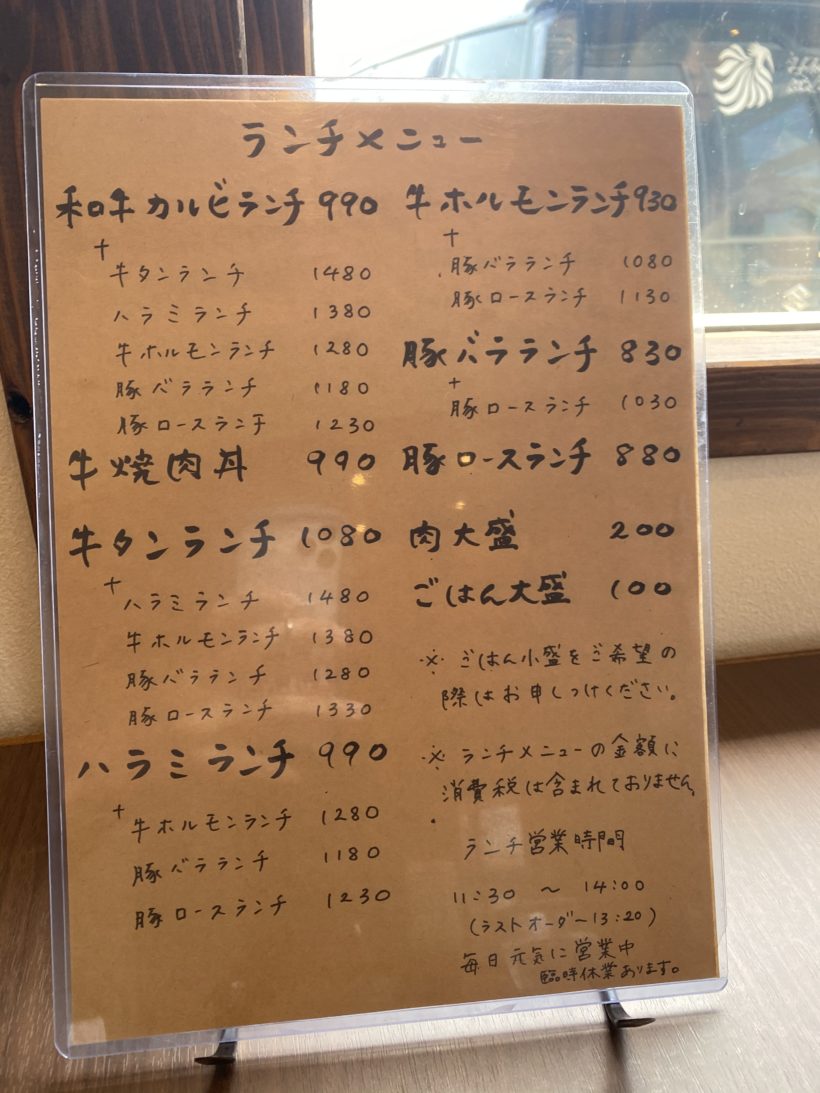 ランチメニュー
和牛カルビランチ 990
+
牛タンランチ 1480
ハラミランチ 1380
牛ホルモンランチ 1280
豚バラランチ 1180
豚ロースランチ 1230
牛焼肉丼 990
牛タンランチ 1080
+
ハラミランチ 1480
牛ホルモンランチ 1380
豚バラランチ 1280
豚ロースランチ 1330
ハラミランチ 990
+
牛ホルモンランチ 1280
豚バラランチ 1180
豚ロースランチ 1230
牛ホルモンランチ 930
+
豚バラランチ 1080
豚ロースランチ 1130
豚バラランチ 830
+
豚ロースランチ 1030
豚ロースランチ 880
肉大盛 200
ごはん大盛 100
※ ごはん小盛をご希望の
際はお申しつけください。
※ ランチメニューの金額に
消費税は含まれておりません
。
ランチ営業時間
11:30 〜 14:00
(ラストオーダー13:20)
毎日元気に営業中
臨時休業あります。